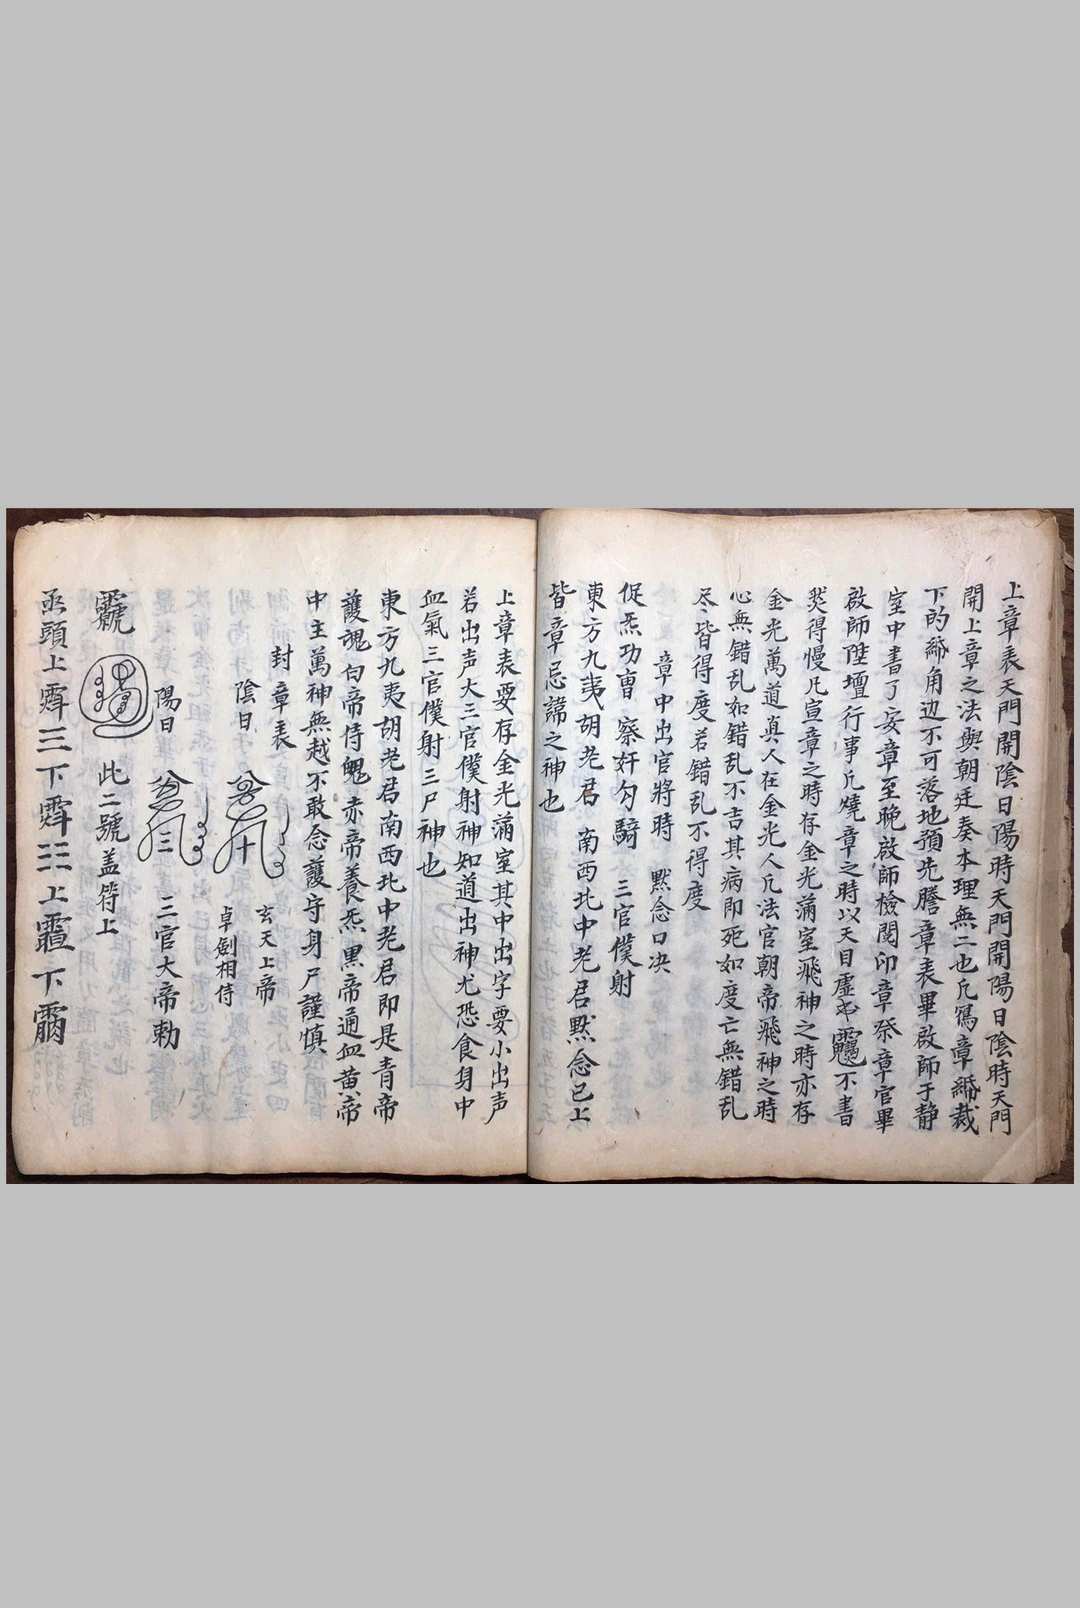 上章表天門開陰日陽時天門開陽日陰時天門
開上章之法與朝廷奏本理無二也凢寫章紙裁
下的紙角边不可落地預先謄章表畢啟師于静
室中書了安章至晚啟師檢閱印章祭章官畢
啟師陞壇行事凢燒章之時以天目虚书不書
焚得慢凢宣章之時存金光蒲室飛神之時亦存
金光萬道真人在金光人凢法官朝帝飛神之時
心無錯乱如錯乱不吉其病即死如度亡無錯乱
尽皆得度若錯乱不得度
章中出官將時 黙念口决
促炁功曺 察奸勾騎 三官僕射
東方九夷胡老君 南西北中老君黙念已上
皆章忌諱之神也
上章表要存金光蒲室其中出字要小出声
若出声大三官僕射神知道出神尤恐食身中
血氣三官僕射三尸神也
東方九夷胡老君南西北中老君即是青帝
護魂白帝侍魄赤帝養炁黒帝通血黄帝
中主萬神無越不敢念護守身尸謹慎
封章表
陰日 十 玄天上帝
卓劍相侍
陽日 三 三官大帝勅
此二號盖符上
頭上 三下 上 下